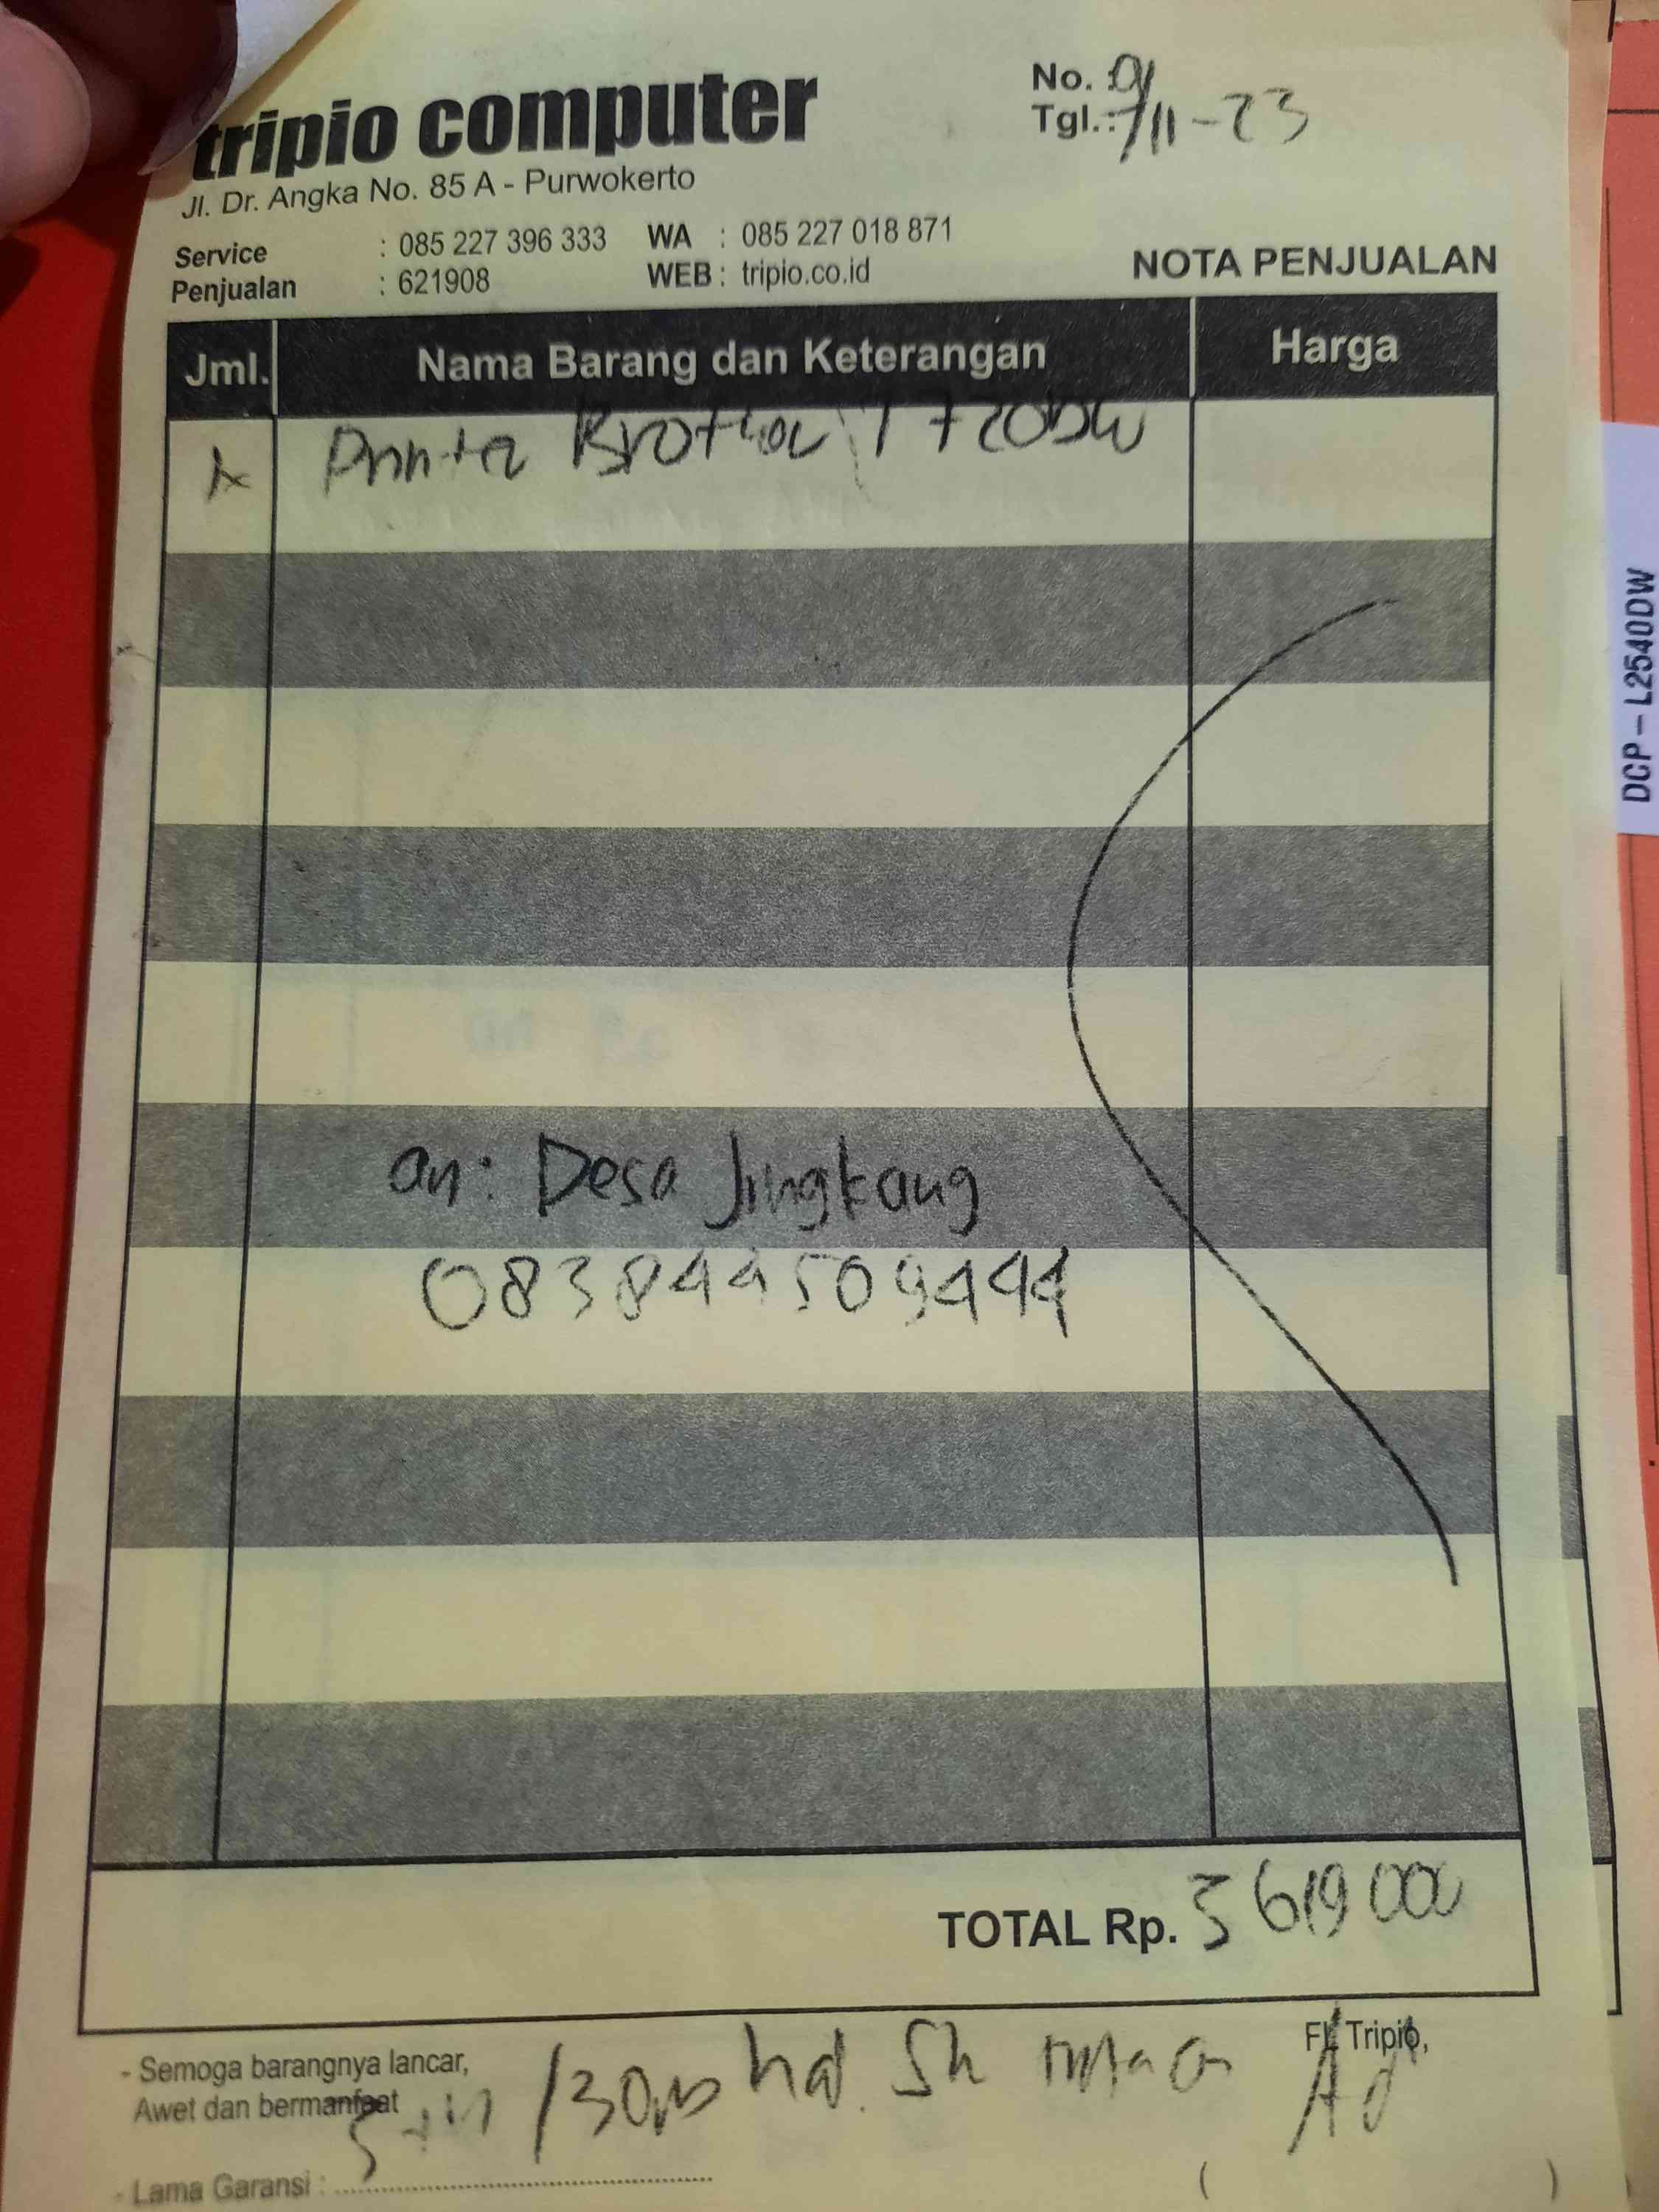 tripio computer
Jl. Dr. Angka No. 85 A - Purwokerto
No. :
Tgl.: 7/11-23
Service : 085 227 396 333 WA : 085 227 018 871
Penjualan : 621908 WEB : tripio.co.id
NOTA PENJUALAN
Jml. Nama Barang dan Keterangan Harga
Printer Brother T720DW
an: Desa Jingkang
083844509444
TOTAL Rp. 3619000
- Semoga barangnya lancar,
Awet dan bermanfaat
- Lama Garansi :
Tripio,
( )
DCP - L2540DW